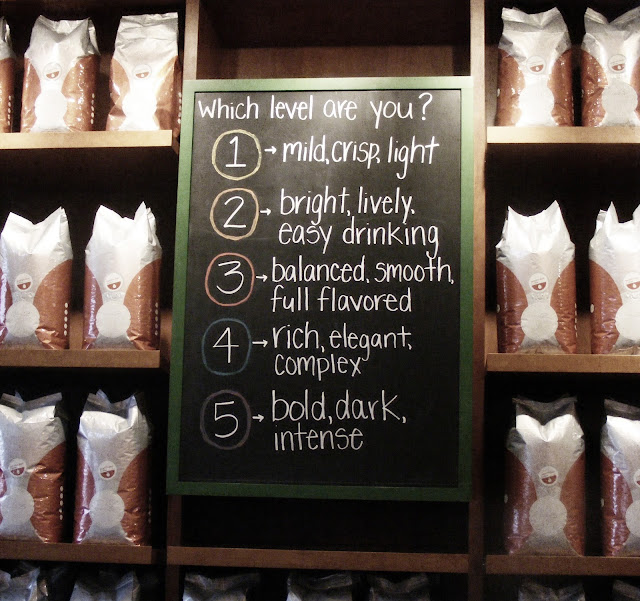 Which level are you?
1 → mild, crisp, light
2 → bright, lively.
easy drinking
3 → balanced, smooth,
full flavored
4 → rich, elegant,
complex
5 → bold, dark,
intense